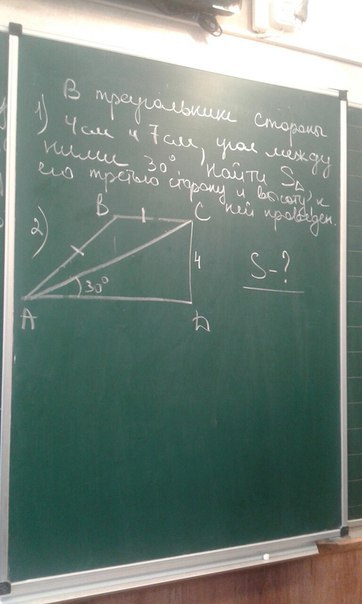 В треугольники стороны
1) 4см и 7см, угол между
ними 30°, найти S△
его третью сторону и высоту, к
ней проведен.
2)
B
C
4
S-?
30°
A
D